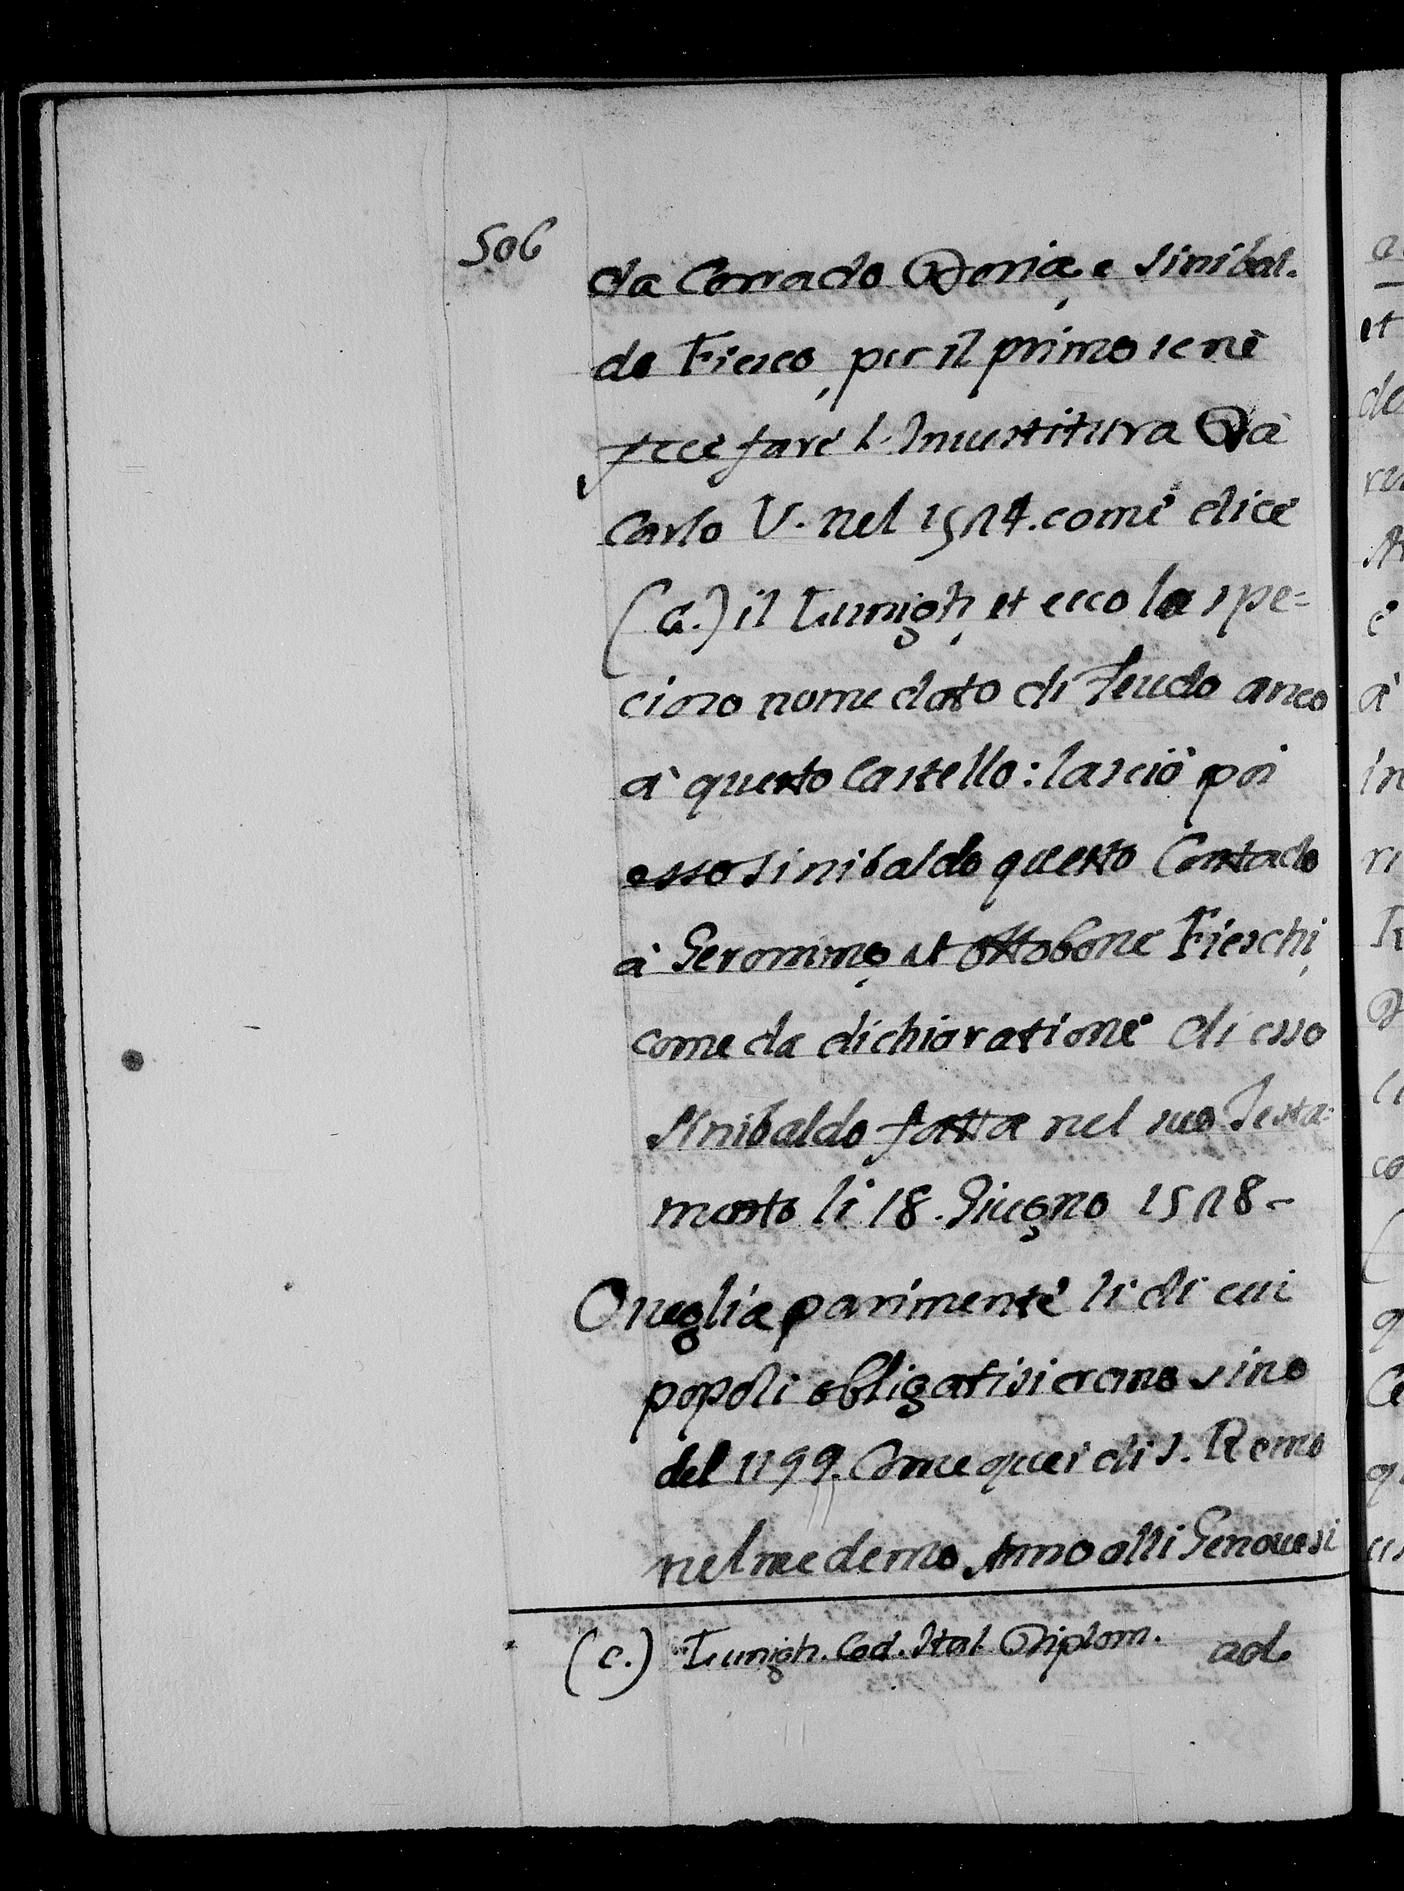 506
da Corrado Doria, e Sinibal.
do Fiesco, per il primo se nè
fece farè l. Inuestitura Da
Carlo V. nel 1524. comè dicè
(a.) il Lunigh, et ecco lo spe=
cioso nome dato di feudo anco
à questo Castello: lasciò poi
esso Sinibaldo questo Contado
à Geronimo, et Ottobone Fieschi,
come da dichiarationè di esso
Sinibaldo fatta nel suo Testa=
mento li 18. Giugno 1528-
Oneglia parimentè li di cui
popoli obligatisi erano sino
del 1199. Come quei di S. Remo
nel medemo Anno alli Genouesi
(a.) Lunigh. Cod. Ital. Diplom.
ad